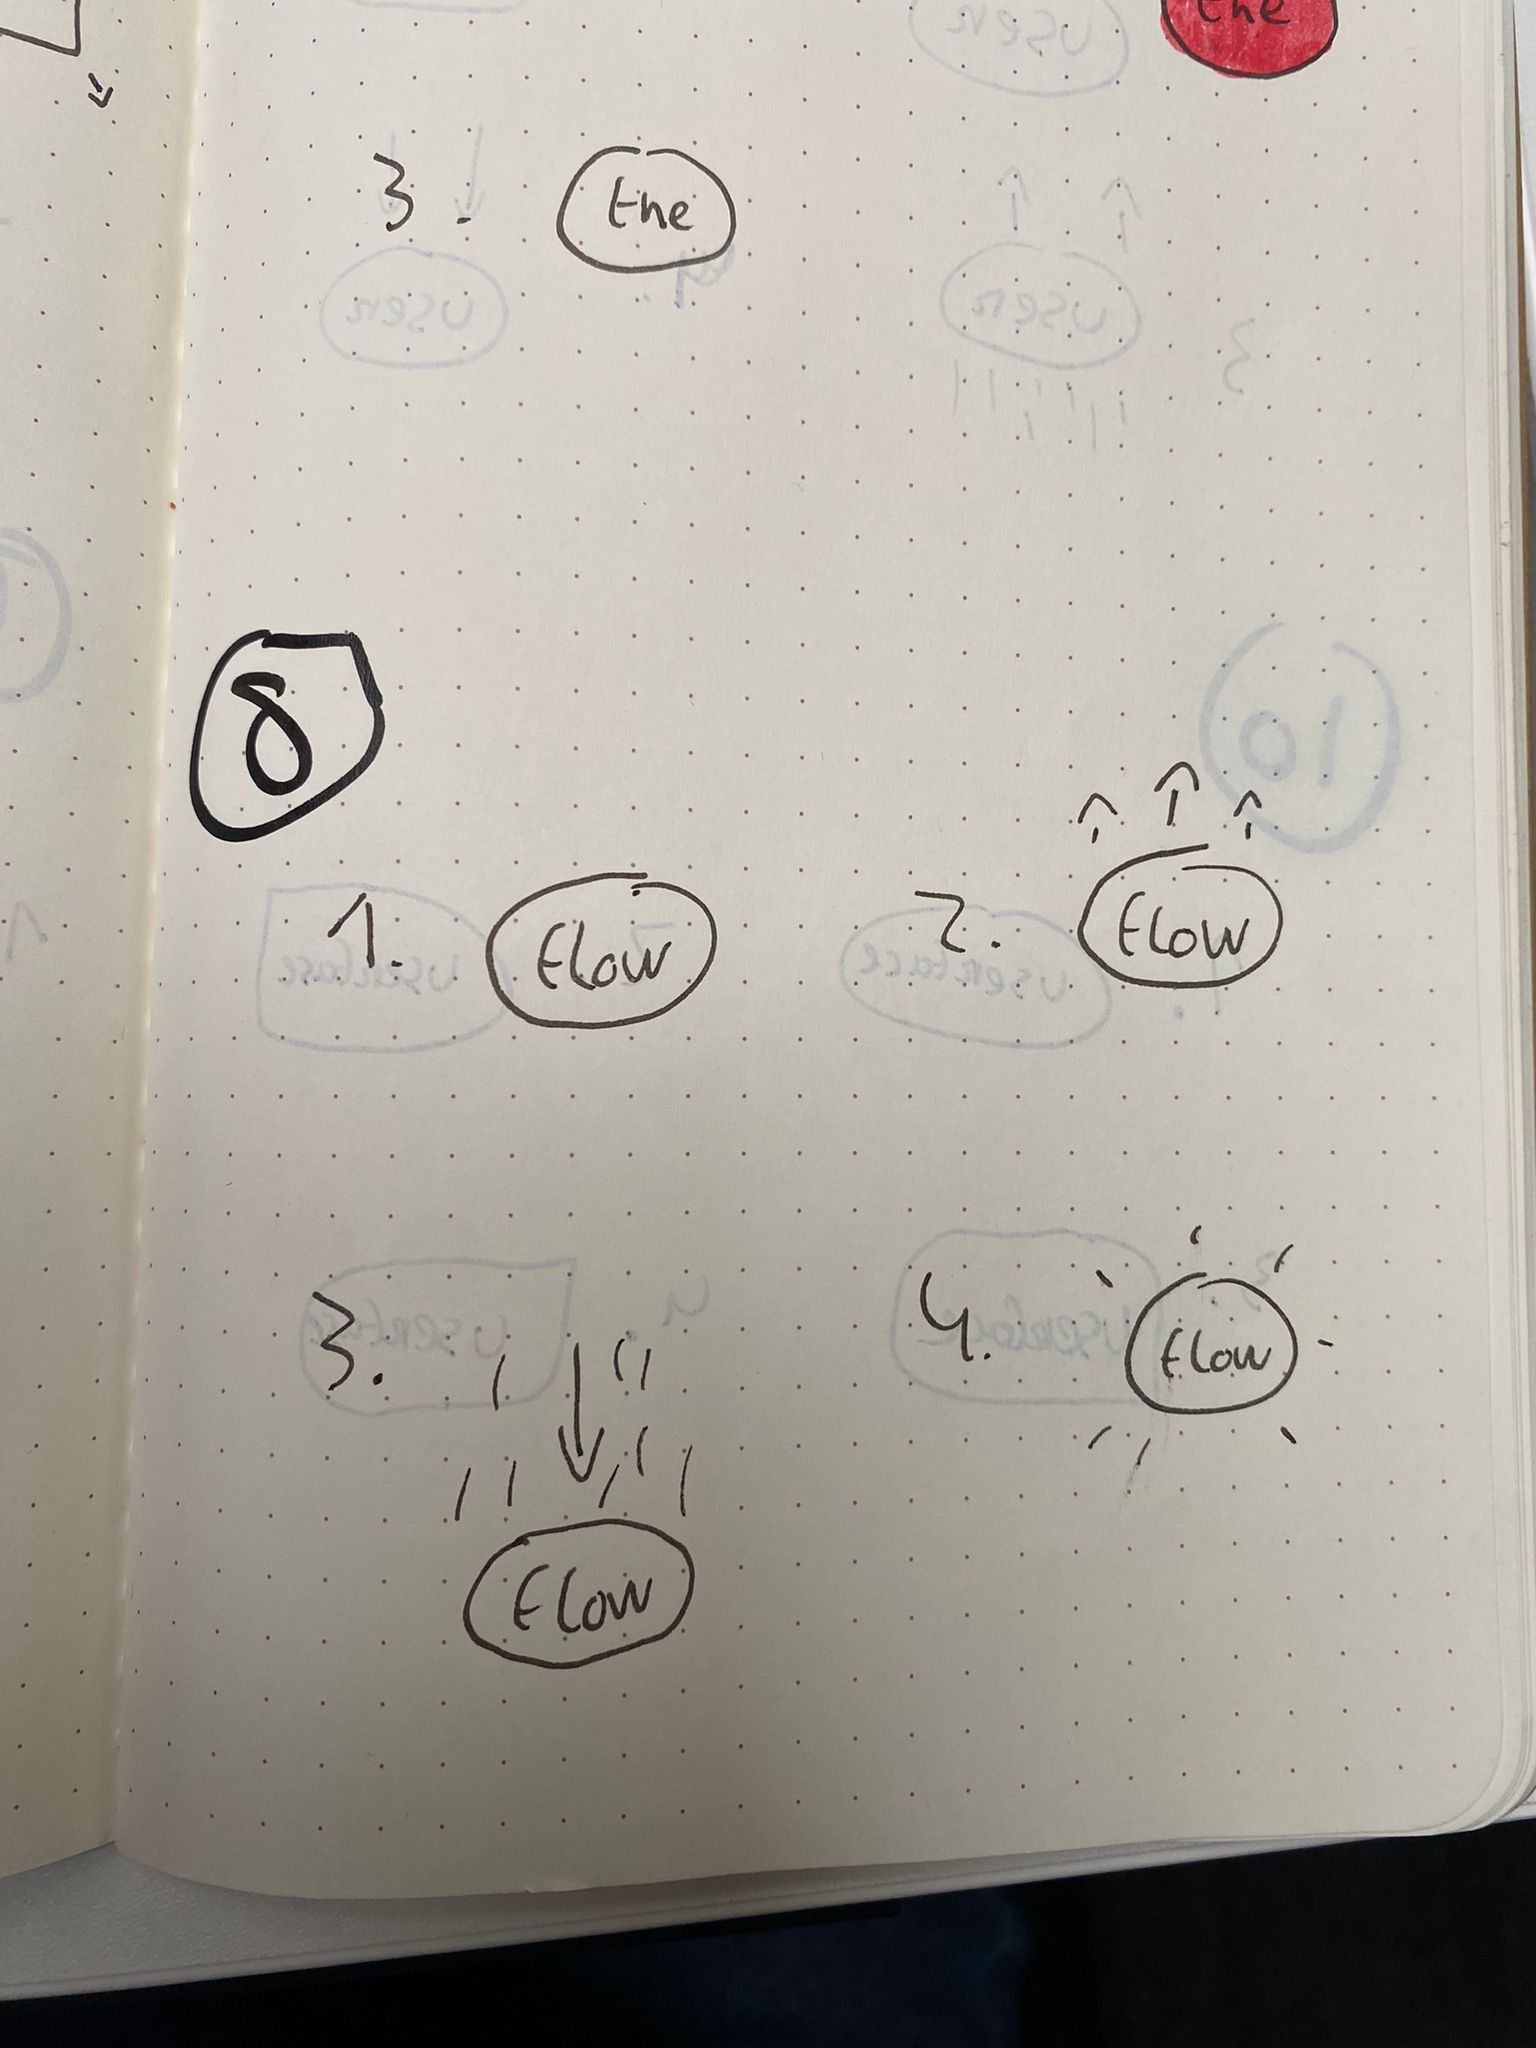 the
3. the
8
1. Flow
2. Flow
3. Flow
4. Flow